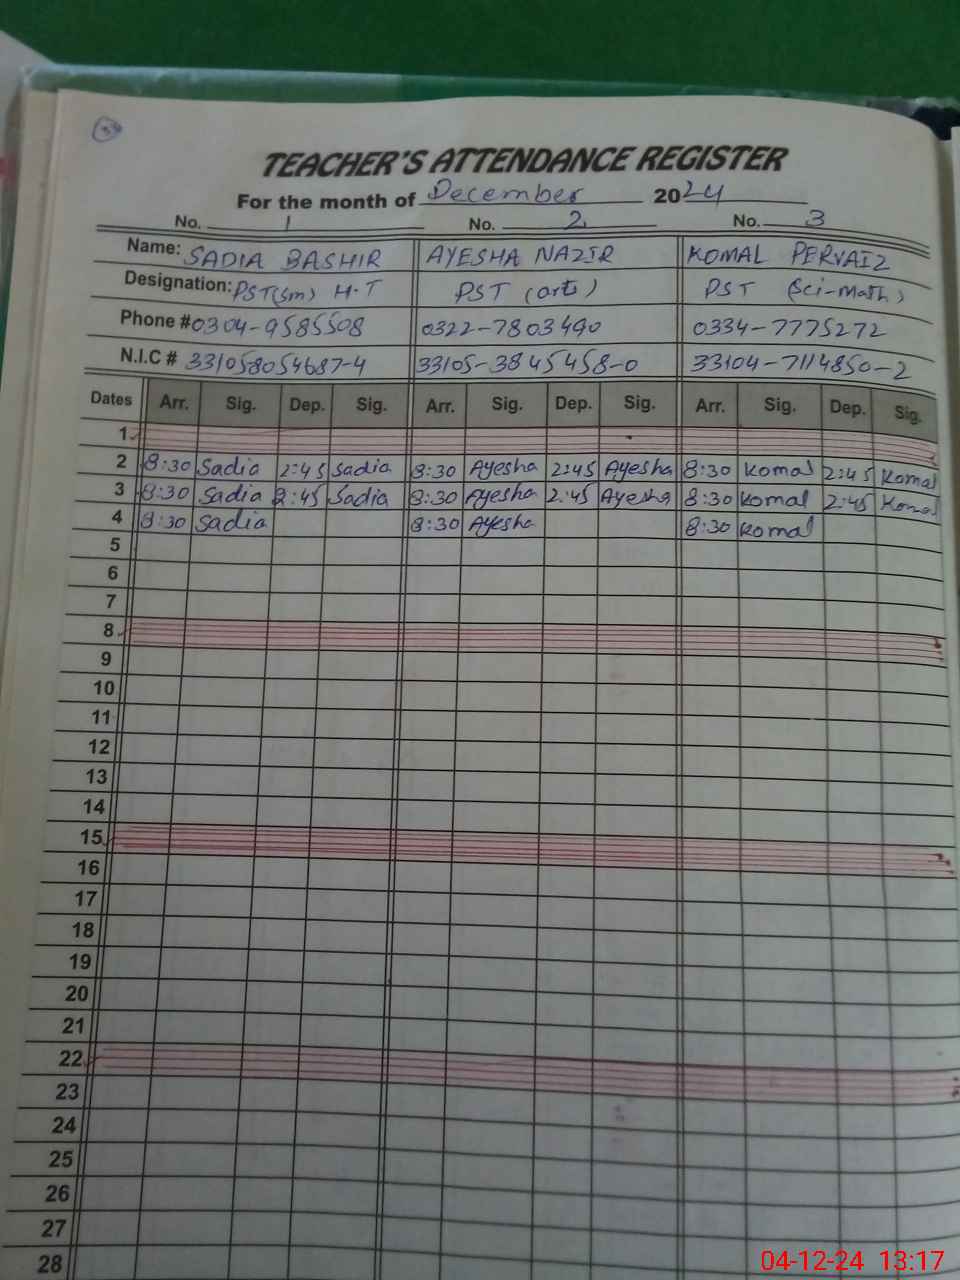 TEACHER'S ATTENDANCE REGISTER
For the month of December 2024
No. 1 No. 2 No. 3
Name: SADIA BASHIR AYESHA NAZIR KOMAL PERVAIZ
Designation: PST(Sm) H.T PST (arts) PST (Sci-math)
Phone # 0304-9585508 0322-7803490 0334-7775272
N.I.C # 331058054687-4 33105-3845458-0 33104-7114850-2
Dates Arr. Sig. Dep. Sig. Arr. Sig. Dep. Sig. Arr. Sig. Dep. Sig.
1
2 8:30 Sadia 2:45 Sadia 8:30 Ayesha 2:45 Ayesha 8:30 Komal 2:45 Komal
3 8:30 Sadia 2:45 Sadia 8:30 Ayesha 2:45 Ayesha 8:30 Komal 2:45 Komal
4 8:30 Sadia 8:30 Ayesha 8:30 Komal
5
6
7
8
9
10
11
12
13
14
15
16
17
18
19
20
21
22
23
24
25
26
27
28
04-12-24 13:17